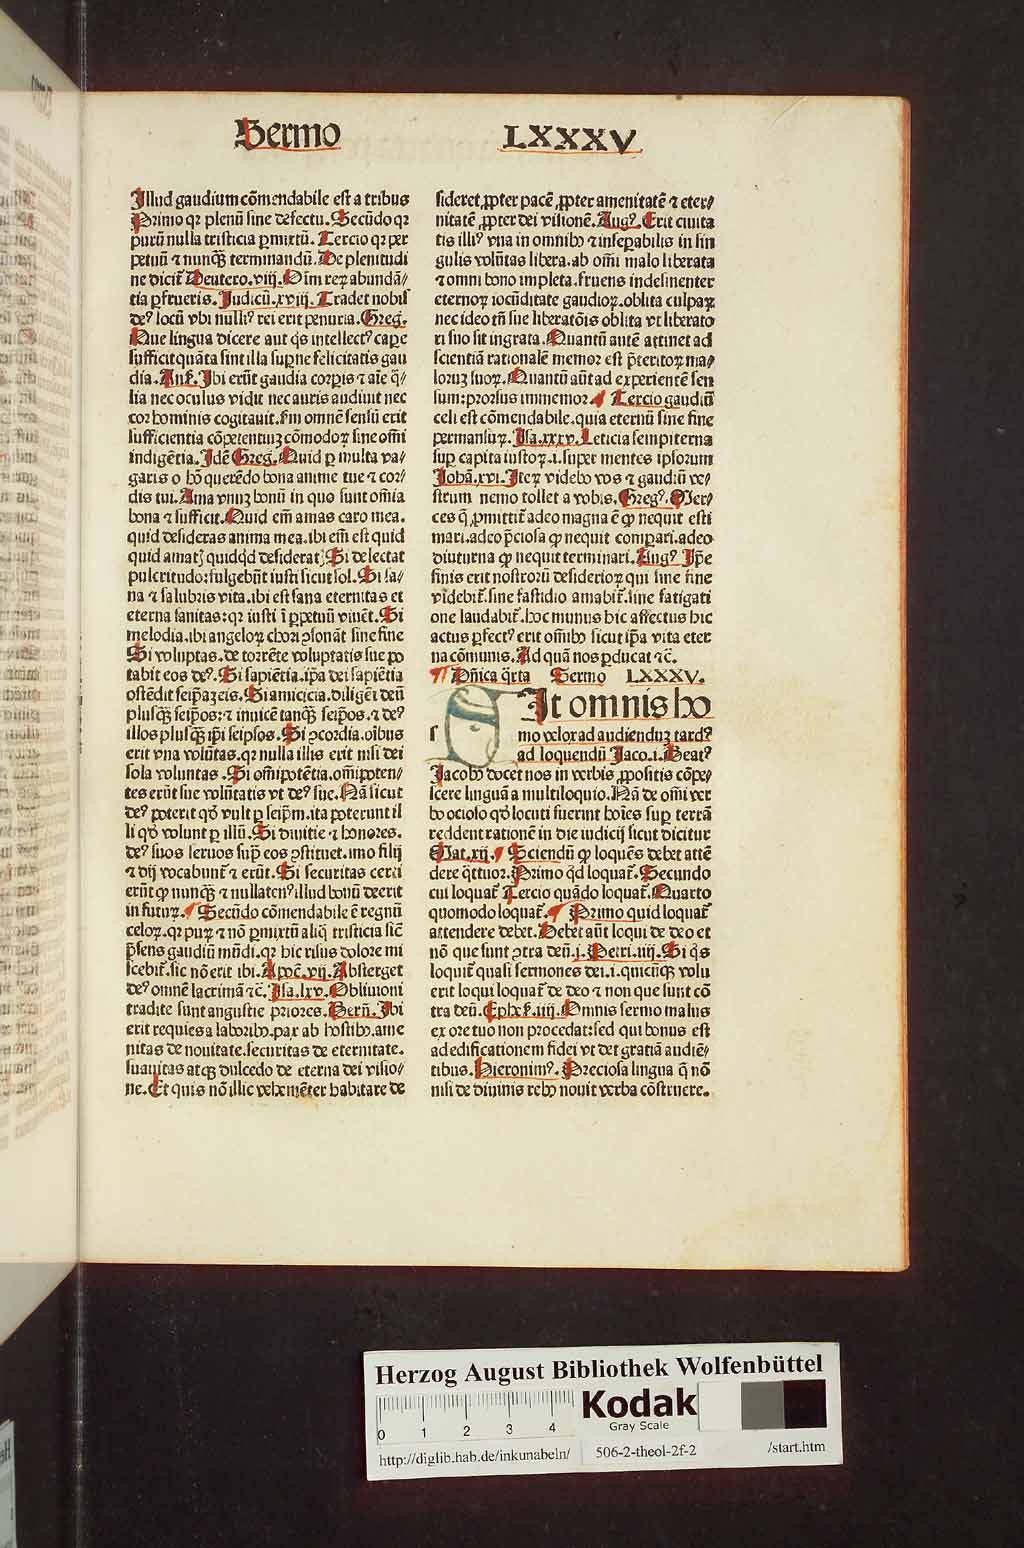 Sermo LXXXV
Illud gaudium cōmendabile est a tribus
Primo qr plenū sine defectu. Secūdo qr
purū nulla tristicia ꝑmixtū. Tercio qr per
petuū ⁊ nunꝙ̄ terminandū. De plenitudi
ne dicit᷑ Deutero. viij. Oīm reꝝ abundā⸗
tia ꝑfrueris. Judicū. xviij. Tradet nobis
deꝰ locū vbi nulliꝰ rei erit penuria. Greg.
Que lingua dicere aut q̇s intellectꝰ capͤe
sufficit quāta sint illa suꝑne felicitatis gau
dia. Ans. Ibi erūt gaudia corꝑis ⁊ aīe q̄⸗
lia nec oculus vidit nec auris audiuit nec
cor hominis cogitauit. sm̄ omnē sensū erit
sufficientia cōpetentiuꝫ cōmodoꝝ sine om̄i
indigētia. Idē Greg. Quid ꝑ multa va⸗
garis o hō querēdo bona anime tue ⁊ cor⸗
dis tui. Ama vnuꝫ bonū in quo sunt om̄ia
bona ⁊ sufficit. Quid em̄ amas caro mea.
quid desideras anima mea. ibi em̄ est quid
quid amatꝭ quidq̇d desideratꝭ Si delectat
pulcritudo: fulgebūt iusti sicut sol. Si sa⸗
na ⁊ salubris vita. ibi est sana eternitas et
eterna sanitas: qr iusti ī ꝑpetuū viuēt. Si
melodia. ibi angeloꝝ chori ꝯsonāt sine fine
Si voluptas. de torrēte voluptatis sue po
tabit eos deꝰ. Si sapiētia. ip̄a dei sapiētia
ostēdit seip̄aꝫ eis. Si amicicia. diligēt deū
plusꝙ̄ seip̄os: ⁊ inuicē tanꝙ̄ seip̄os. ⁊ deꝰ
illos plusꝙ̄ ip̄i seipsos. Si ꝯcordia. oībus
erit vna volūtas. qr nulla illis erit nisi dei
sola voluntas. Si om̄ipotētia. om̄ipoten⸗
tes erūt sue volūtatis vt deꝰ sue. Nā sicut
deꝰ poterit qd̛ vult ꝑ seip̄m. ita poterunt il
li qd̛ volunt ꝑ illū. Si diuitie ⁊ honores.
deꝰ suos seruos sup̄ eos ꝯstituet. imo filij
⁊ dij vocabunt᷑ ⁊ erūt. Si securitas certi
erūt ꝙ nunꝙ̄ ⁊ nullatenꝰ illud bonū deerit
in futuꝝ. ¶ Secūdo cōmendabile ē regnū
celoꝝ. qr puꝝ ⁊ nō ꝑmixtū aliq̄ tristicia sic̄
p̄sens gaudiū mūdi. qr hic risus dolore mi
scebit᷑. sic nō erit ibi. Apoc̄. vij. Absterget
deꝰ omnē lacrimā ⁊c̄. Isa. lxv. Obliuioni
tradite sunt angustie priores. Bern̄. Ibi
erit requies a laboribꝰ. pax ab hostibꝰ. ame
nitas de nouitate. securitas de eternitate.
suauitas atqꝫ dulcedo de eterna dei visio⸗
ne. Et quis nō illic vehemēter habitare de
sideret ꝓpter pacē ꝓpter amenitatē ⁊ eter⸗
nitatē ꝓpter dei visionē. Augꝰ. Erit ciuita
tis illiꝰ vna in omnibꝰ ⁊ insepabilis in sin
gulis volūtas libera. ab om̄i malo liberata
⁊ omni bono impleta. fruens indesinenter
eternoꝝ iocūditate gaudioꝝ. oblita culpaꝝ
nec ideo tn̄ sue liberatōis oblita vt liberato
ri suo sit ingrata. Quantū autē attinet ad
scientiā rationalē memor est p̄teritoꝝ ma⸗
loruꝫ suoꝝ. Quantū aūt ad experientē sen
sum: prorsus immemor. ¶ Tercio gaudiū
celi est cōmendabile. quia eternū sine fine
permansuꝝ. Isa. xxxv. Leticia sempiterna
sup̄ capita iustoꝝ. i. super mentes ipsorum
Johā. xvi. Iteꝝ videbo vos ⁊ gaudiū ve⸗
strum nemo tollet a vobis. Gregꝰ. Mer⸗
ces q̄ ꝓmittit᷑ adeo magna ē ꝙ nequit esti
mari. adeo p̄ciosa ꝙ nequit comꝑari. adeo
diuturna ꝙ nequit terminari. Augꝰ Ip̄e
finis erit nostrorū desiderioꝝ qui sine fine
videbit᷑. sine fastidio amabit᷑. sine fatigati
one laudabit᷑. hoc munus hic affectus hic
actus ꝑfectꝰ erit om̄ibꝰ sicut ip̄a vita eter
na cōmunis. Ad quā nos ꝑducat ⁊c̄.
¶ Dn̄ica q̄rta Sermo LXXXV.
SIt omnis ho
mo velox ad audienduꝫ tardꝰ
ad loquendū Jaco. i. Beatꝰ
Jacobꝰ docet nos in verbis ꝓpositis cōpe⸗
scere linguā a multiloquio. Nā de om̄i ver
bo ocioso qd̛ locuti fuerint hoīes sup̄ terrā
reddent rationē in die iudicij sicut dicitur
Mat. xij. ¶ Sciendū ꝙ loquēs debet attē
dere q̄ttuor. Primo q̇d loquat᷑. Secundo
cui loquat᷑ Tercio quādo loquat᷑. Quarto
quomodo loquat᷑. ¶ Primo quid loquat᷑
attendere debet. Debet aūt loqui de deo et
nō que sunt ꝯtra deū. j. Petri. iiij. Si q̇s
loquit᷑ quasi sermones dei. i. quicūꝙ volu
erit loqui loquat᷑ de deo ⁊ non que sunt cō
tra deū. Ephes̄. iiij. Omnis sermo malus
ex ore tuo non procedat: sed qui bonus est
ad edificationem fidei vt det gratiā audiē⸗
tibus. Hieronimꝰ. Preciosa lingua q̄ nō
nisi de diuinis rebꝰ nouit verba cōstruere.
Herzog August Bibliothek Wolfenbüttel
0 1 2 3 4
Kodak
Gray Scale
http://diglib.hab.de/inkunabeln/ 506-2-theol-2f-2 /start.htm